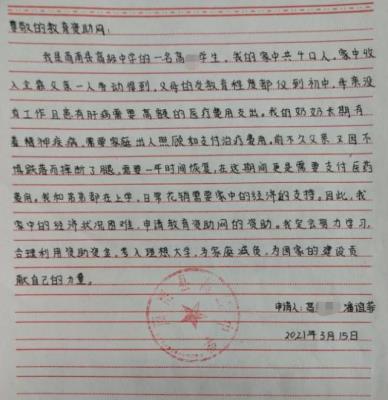 尊敬的教育资助网:
我是南县高级中学的一名高学生,我的家中共4口人,家中收
入主靠父亲一人劳动得到,父母的受教育程度都仅到初中,母亲没
有工作且患有肝病需要高额的医疗费用支出。我的奶奶长期有
着精神疾病,需要家庭出人照顾和支付治疗费用。前不久父亲又因不
慎跌落而摔断了腿,需要一年时间恢复,在这期间更是需要支付医药
费用。我和弟弟都在上学,日常花销需要家中的经济的支撑。因此,我
家中的经济状况困难,申请教育资助网的资助。我定会努力学习,
合理利用资助资金,考入理想大学,为家庭减负,为国家的建设贡
献自己的力量。
申请人:高 潘谊
2021年3月15日